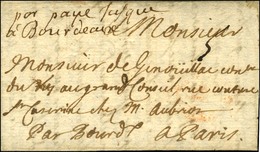 por payé jusque
à Bourdeaux Monsieur
Monsieur de Genouillac con.er
du Roy au grand Conseil rue couture
S.te Caterine chez M. Aubriot
Par Bourd.x a Paris.